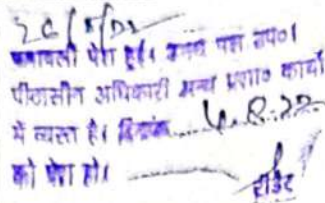 पत्रावली पेश हुई। उभय पक्ष उप०।
पीठासीन अधिकारी अन्य प्रशा० कार्यो
में व्यस्त है। दिनांक 4.8.22
को पेश हो।
रीडर